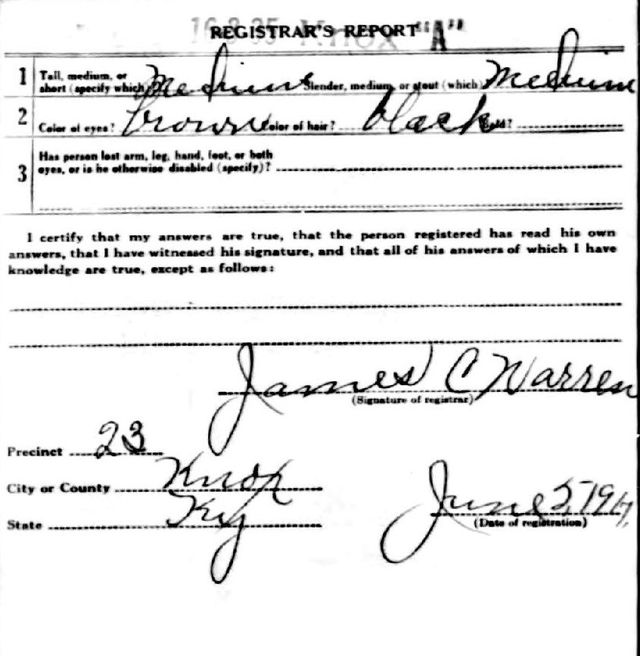 16-3-35 Knox "A"
REGISTRAR'S REPORT
1 Tall, medium, or short (specify which)? Medium Slender, medium, or stout (which)? Medium
2 Color of eyes? brown Color of hair? black Bald?
3 Has person lost arm, leg, hand, foot, or both
eyes, or is he otherwise disabled (specify)?
I certify that my answers are true, that the person registered has read his own
answers, that I have witnessed his signature, and that all of his answers of which I have
knowledge are true, except as follows:
James C Warren
(Signature of registrar)
Precinct 23
City or County Knox
State Ky
June 5, 1917.
(Date of registration)